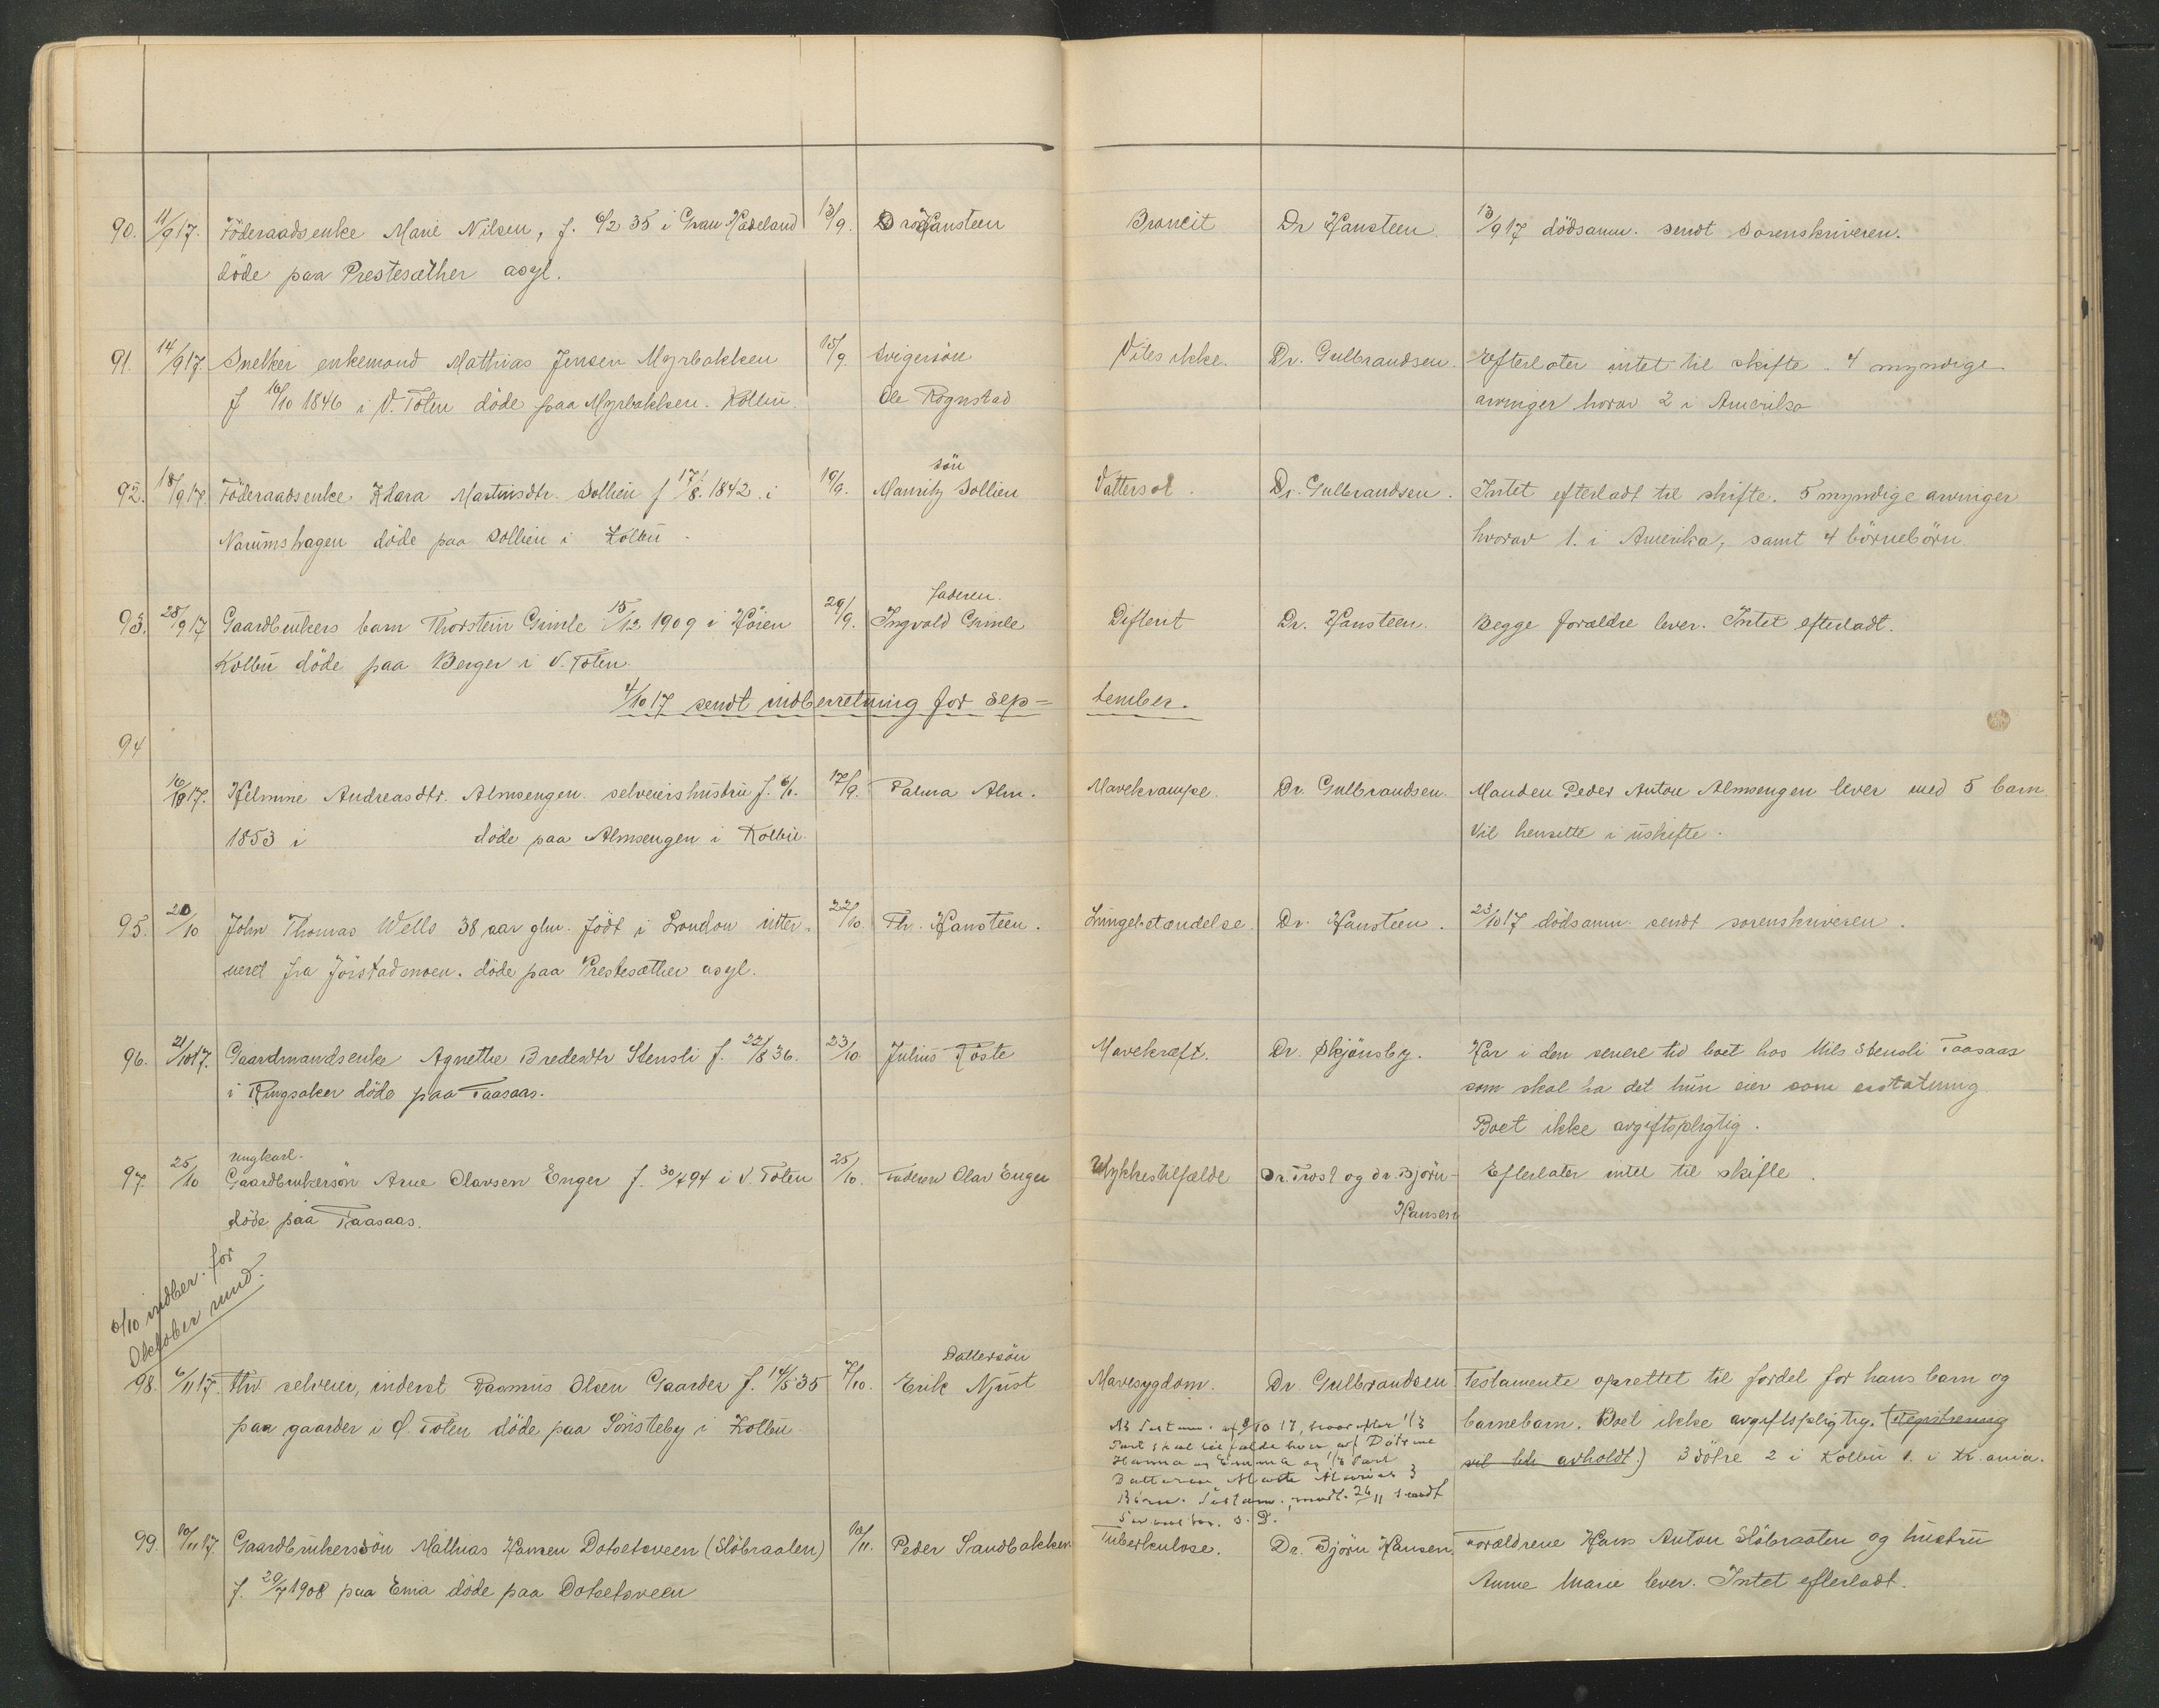 90. 11/9 17. Föderaadsenke Marie Nilsen, f. 6/2 35 i Gran Hadeland 13/9. Dr Hansteen Broncit Dr Hansteen. 13/9 17 dödsanm. sendt sorenskriveren.
döde paa Prestesæther asyl.
91. 14/9 17. Snekker enkemand Mathias Jensen Myrbakken 15/9. Svigersön Vites ikke. Dr. Gulbrandsen. Efterlater intet til skifte. 4 myndige
f 16/10 1846 i V. Toten döde paa Myrbakken. Kolbu. Ole Rognstad arvinger horav 2 i Amerika
sön
92. 18/9 17. Föderaadsenke Klara Martinsdtr. Sollien f 17/8. 1842 i 19/9. Mauritz Sollien Vattersot. Dr. Gulbrandsen. Intet efterladt til skifte. 5 myndige arvinger
Narumshagen döde paa Sollien i Kolbu. hvorav 1. i Amerika, samt 4 börnebörn
faderen.
93. 28/9 17 Gaardbrukers barn Thorstein Grimle 15/12 1909 i Höien 29/9. Ingvald Grimle Difterit Dr. Hansteen. Begge forældre lever. Intet efterladt.
Kolbu döde paa Berger i V. Toten.
4/10 17 sendt indberretning for sep=tember.
94
16/10 17. Helmine Andreasdtr. Almsengen selveiershustru f. 6/1. 17/9. Palma Alm. Mavekrampe. Dr. Gulbrandsen. Manden Peder Anton Almsengen lever med 5 barn
1853 i döde paa Almsengen i Kolbu. Vil hensitte i uskifte.
95. 20/10 John Thomas Wells 38 aar glm. födt i London inter- 22/10. Th. Hansteen. Lungebetændelse. Dr. Hansteen. 23/10 17 dödsanm. sendt sorenskriveren.
neret fra Jörstadmoen. döde paa Prestesæther asyl.
96. 21/10 17. Gaardmandsenke Agnethe Bredesdtr Stensli f. 22/8 36. 23/10 Julius Töste Mavekræft. Dr. Skjönsby. Har i den senere tid boet hos Nils Stensli Taasaas
i Ringsaker döde paa Taasaas. som skal ha det hun eier som erstatning
Boet ikke avgiftspligtig.
ungkarl.
97. 25/10 Gaardbrukersön Arne Olavsen Enger f. 30/4 94 i V. Toten 25/10. Faderen Olav Enger Ulykkestilfælde Dr. Trost og dr. Björn- Efterlater intet til skifte.
döde paa Taasaas. Hansen
6/10 indber. for
Oktober mnd.
Dattersön
98. 6/11 17. Fhv selveier, inderst Rasmus Olsen Gaarder f. 14/5 35 7/10. Erik Njust Mavesygdom. Dr. Gulbrandsen Testamente oprettet til fordel for hans barn og
paa gaarder i Ö. Toten döde paa Sönsteby i Kolbu barnebarn. Boet ikke avgiftspligtig. (Registrering
vil bli avholdt.) 3 dötre 2 i Kolbu 1. i Kr.ania.
hvorefter 1/3
Part skal tilfalde hver af Dötrene
Hanna og Emma og 1/3 Part
Datteren
Börn. Testam. modt. 26/11 sendt
S.
99. 10/11 17. Gaardbrukersön Mathias Hansen Dotsetsveen (Slöbraaten) 10/11. Peder Sandbakken Tuberkulose. Dr. Björn Hansen. Forældrene Hans Anton Slöbraaten og hustru
f. 29/7 1908 paa Enia döde paa Dotsetsveen Anne Marie lever. Intet efterladt.